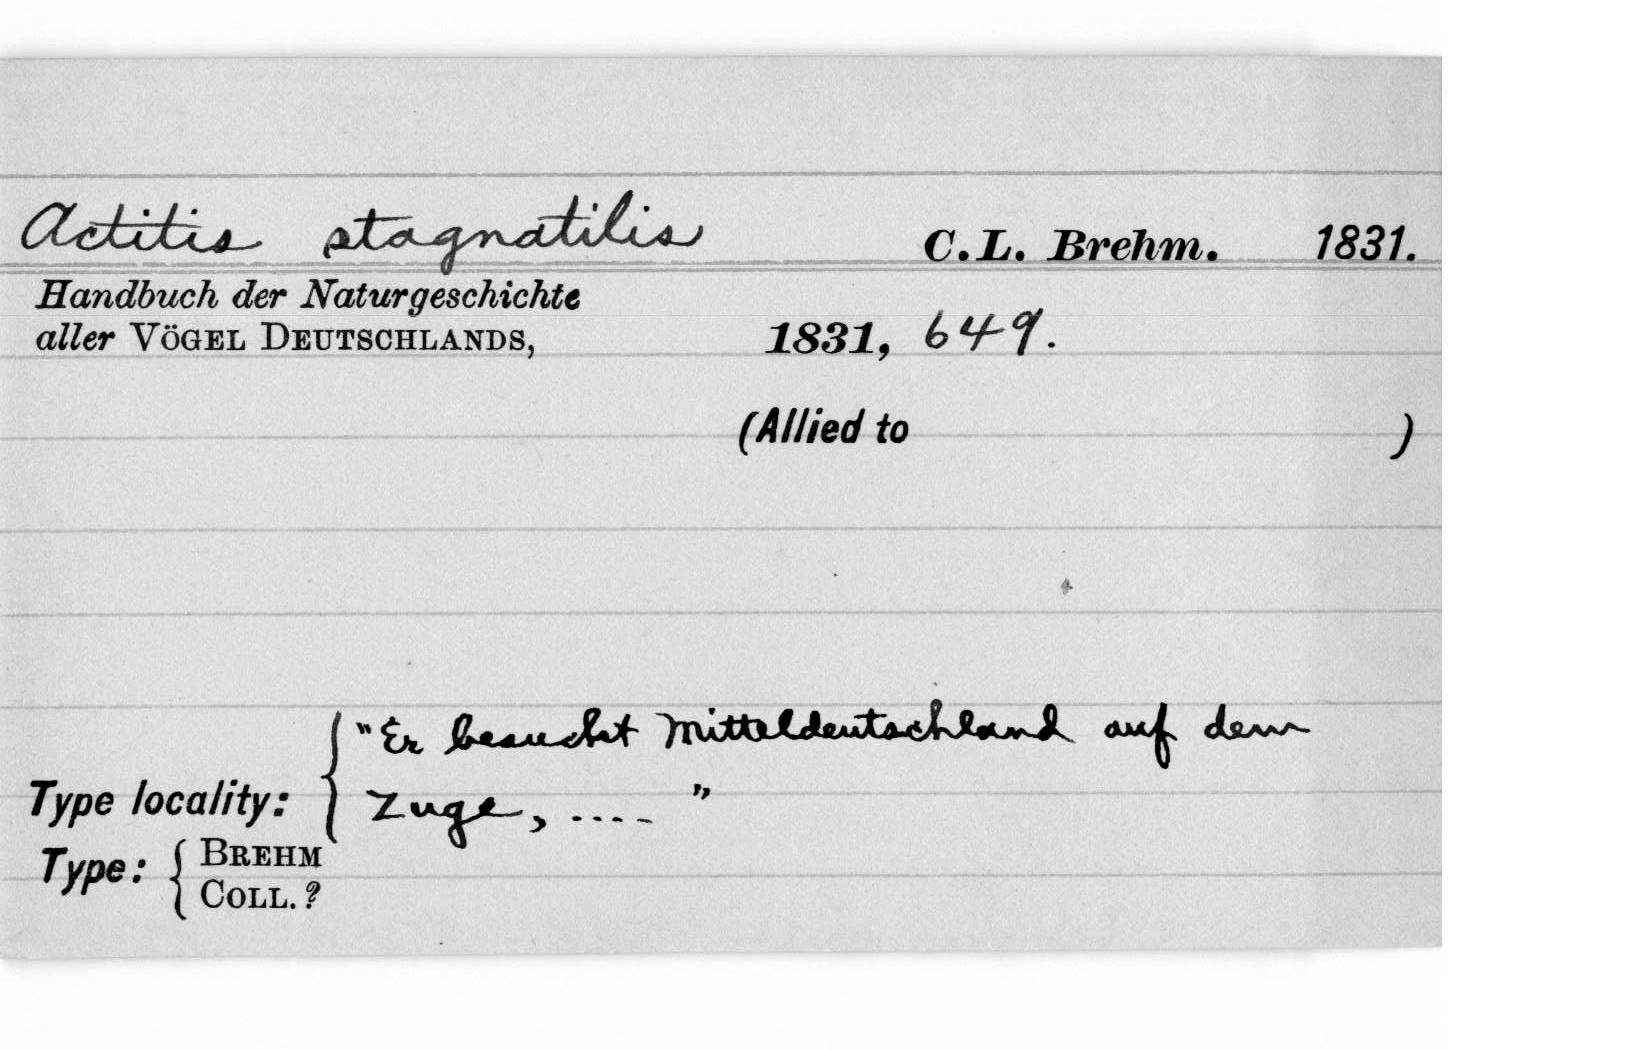 Actitis stagnatilis C.L. Brehm. 1831.
Handbuch der Naturgeschichte
aller VÖGEL DEUTSCHLANDS, 1831, 649.
(Allied to )
"Er besucht Mitteldeutschland auf dem
Type locality: { Zuge, ....."
Type: { BREHM
COLL.?